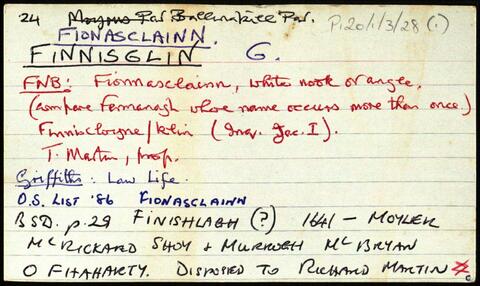 24 Moyrus Par Ballinakill Par. P120/1/3/28 (1)
FIONASCLAINN.
FINNISGLIN G.
FNB: Fionnasclainn, white nook or angle.
(compare Fermanagh whose name occurs more than once.)
Finnisclogne/klin (Inq. Jac. I).
T. Martin, prop.
Griffiths: Law Life.
O.S. LIST '86 FIONASCLAINN
BSD. p.29 FINISHLAGH (?) 1641 - MOYLER
McRICKARD SHOY + MURROGH McBRYAN
O FHAHARTY. DISPOSED TO RICHARD MARTIN